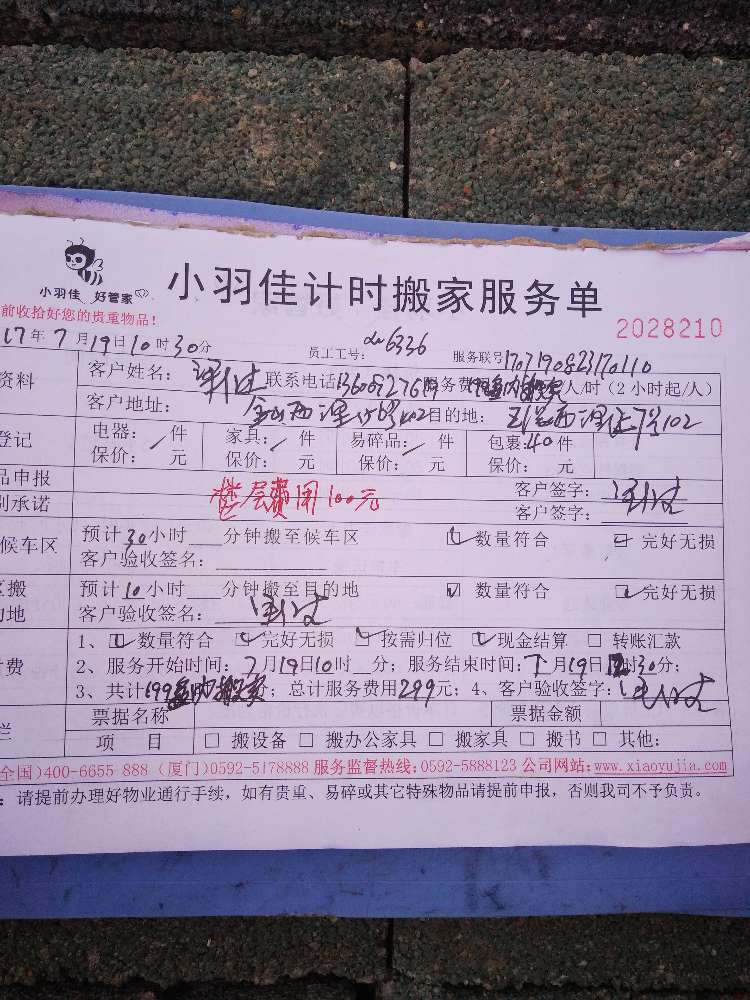 小羽佳 好管家
小羽佳计时搬家服务单
前收拾好您的贵重物品!
2028210
17年7月19日10时30分 员工工号: 6336 服务联号1707190823170110
资料 客户姓名: 联系电话 服务费 人/时(2小时起/人)
客户地址: 目的地:
登记 电器: / 件 家具: / 件 易碎品: / 件 包裹:40件
保价: 元 保价: 元 保价: 元 保价: 元
品申报 楼层费用100元 客户签字:
别承诺 客户签字:
候车区 预计30小时 分钟搬至候车区 ☑ 数量符合 ☑ 完好无损
客户验收签名:
搬 预计10小时 分钟搬至目的地 ☑ 数量符合 ☑ 完好无损
地 客户验收签名:
1、☑ 数量符合 ☑ 完好无损 ☑ 按需归位 ☑ 现金结算 □ 转账汇款
付费 2、服务开始时间:7月19日10时 分;服务结束时间:7月19日12时30分;
3、共计199 ;总计服务费用299元;4、客户验收签字:
栏 票据名称 票据金额
项 目 □ 搬设备 □ 搬办公家具 □ 搬家具 □ 搬书 □ 其他:
全国)400-6655 888 (厦门)0592-5178888 服务监督热线:0592-5888123 公司网站:www.xiaoyujia.com
:请提前办理好物业通行手续,如有贵重、易碎或其它特殊物品请提前申报,否则我司不予负责。